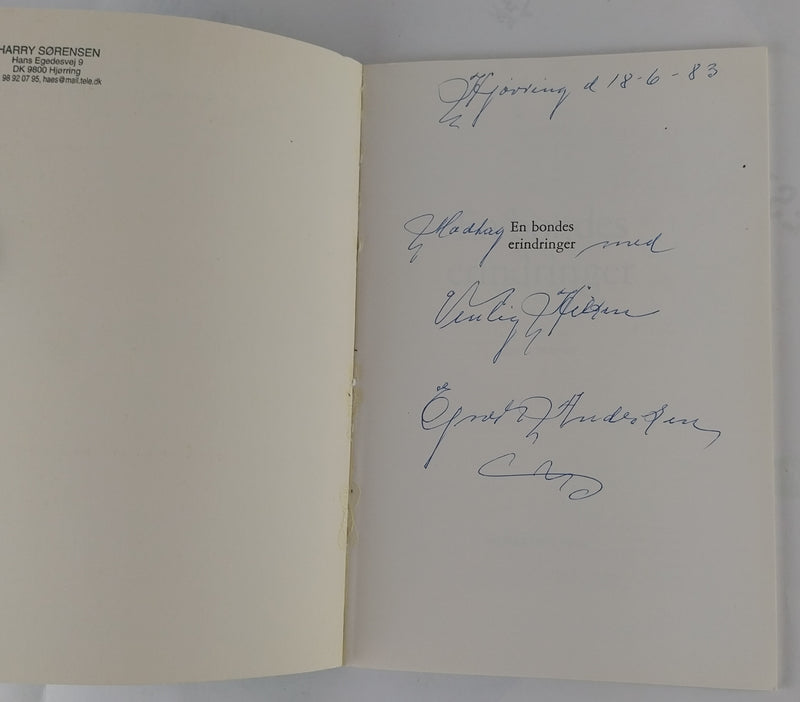 HARRY SØRENSEN
Hans Egedesvej 9
DK 9800 Hjørring
98 92 07 95, haes@mail.tele.dk
Hjørring d 18-6-83
Modtag En bondes
erindringer med
Venlig Hilsen
Andersen